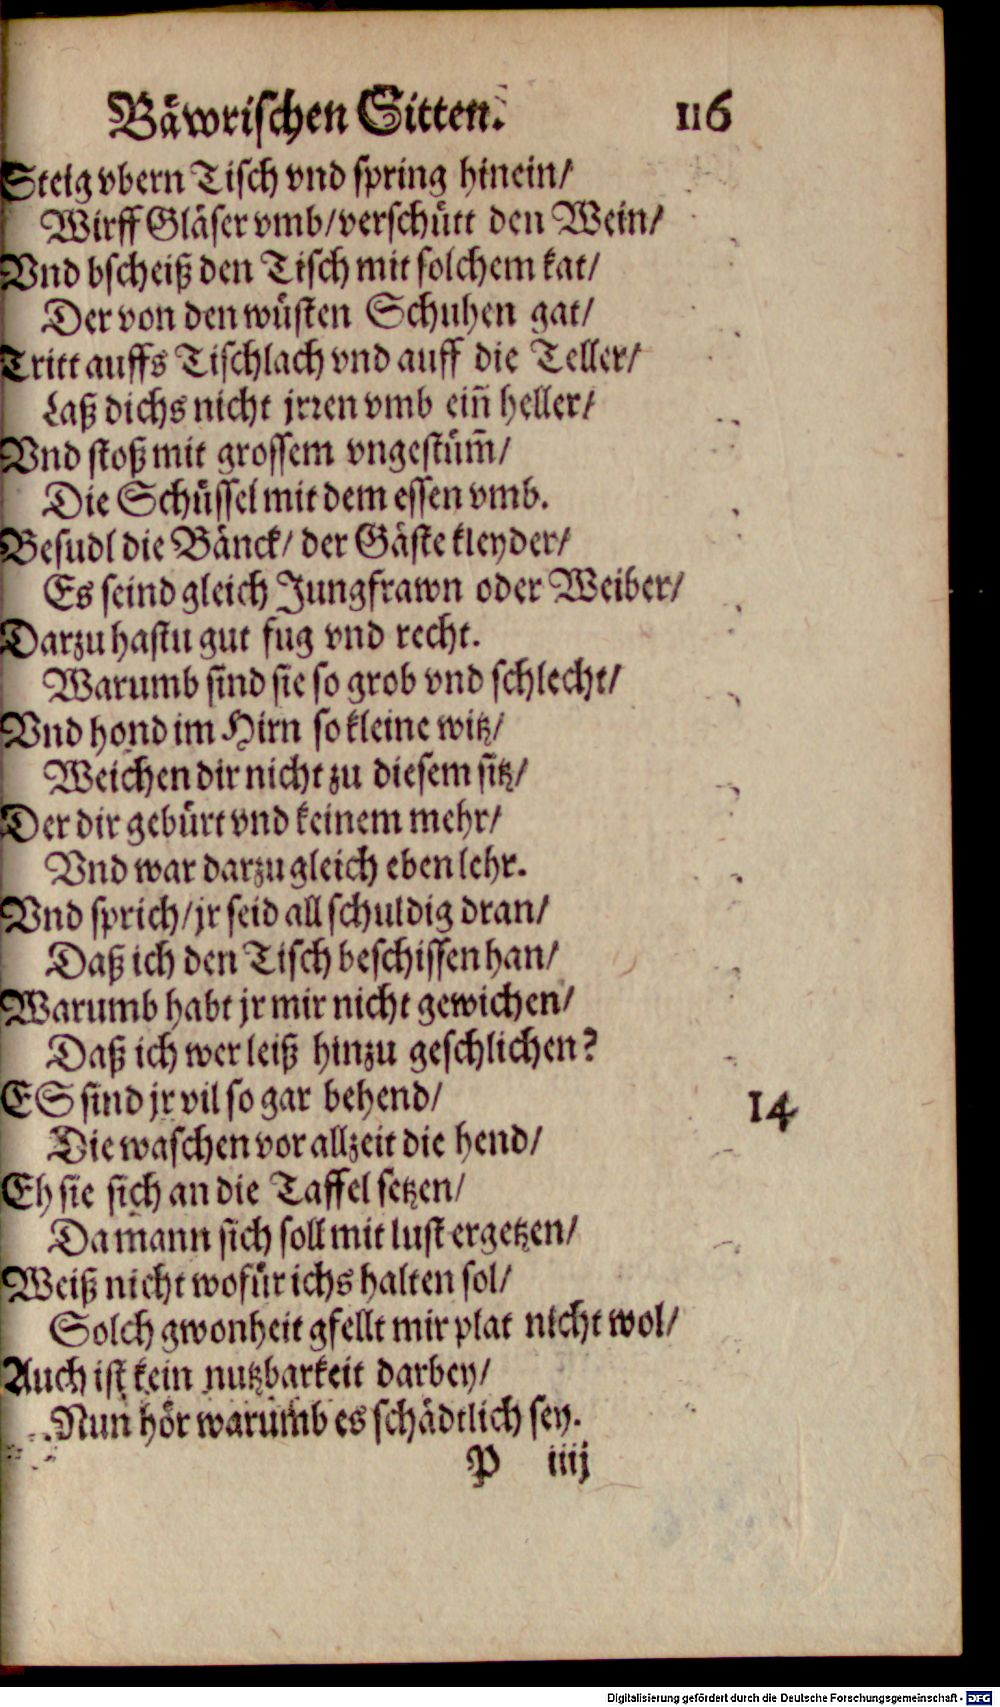 Bäwrischen Sitten. 116
Steig vbern Tisch vnd spring hinein/
Wirff Gläser vmb/verschütt den Wein/
Vnd bscheiß den Tisch mit solchem kat/
Der von den wüsten Schuhen gat/
Tritt auffs Tischlach vnd auff die Teller/
Laß dichs nicht jrren vmb ein̄ heller/
Vnd stoß mit grossem vngestüm̄/
Die Schüssel mit dem essen vmb.
Besudl die Bänck/ der Gäste kleyder/
Es seind gleich Jungfrawn oder Weiber/
Darzu hastu gut fug vnd recht.
Warumb sind sie so grob vnd schlecht/
Vnd hond im Hirn so kleine witz/
Weichen dir nicht zu diesem sitz/
Der dir gebürt vnd keinem mehr/
Vnd war darzu gleich eben lehr.
Vnd sprich/jr seid all schuldig dran/
Daß ich den Tisch beschissen han/
Warumb habt jr mir nicht gewichen/
Daß ich wer leiß hinzu geschlichen?
ES sind jr vil so gar behend/ 14
Die waschen vor allzeit die hend/
Eh sie sich an die Taffel setzen/
Da mann sich soll mit lust ergetzen/
Weiß nicht wofür ichs halten sol/
Solch gwonheit gfellt mir plat nicht wol/
Auch ist kein nutzbarkeit darbey/
Nun hör warumb es schädtlich sey.
P iiij
Digitalisierung gefördert durch die Deutsche Forschungsgemeinschaft - DFG